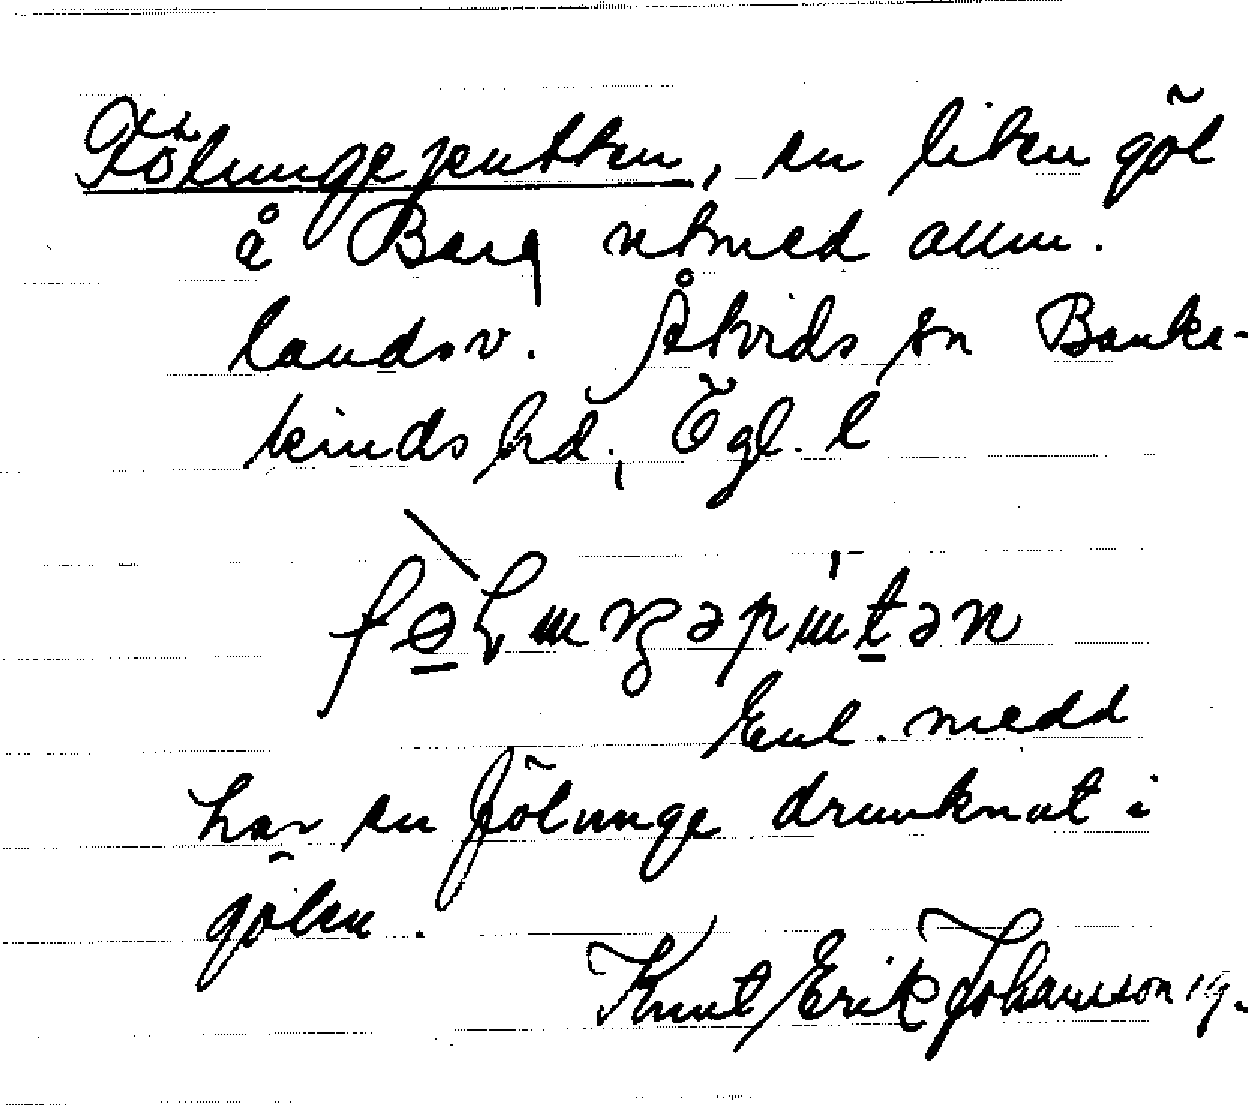 Fölungeputten, en liten göl
å Berg utmed allm.
landsv. Åtvids sn Banke-
kinds hd., Ögl. l
Enl. medd
har en fölunge drunknat i
gölen.
Knut Erik Johansson 19